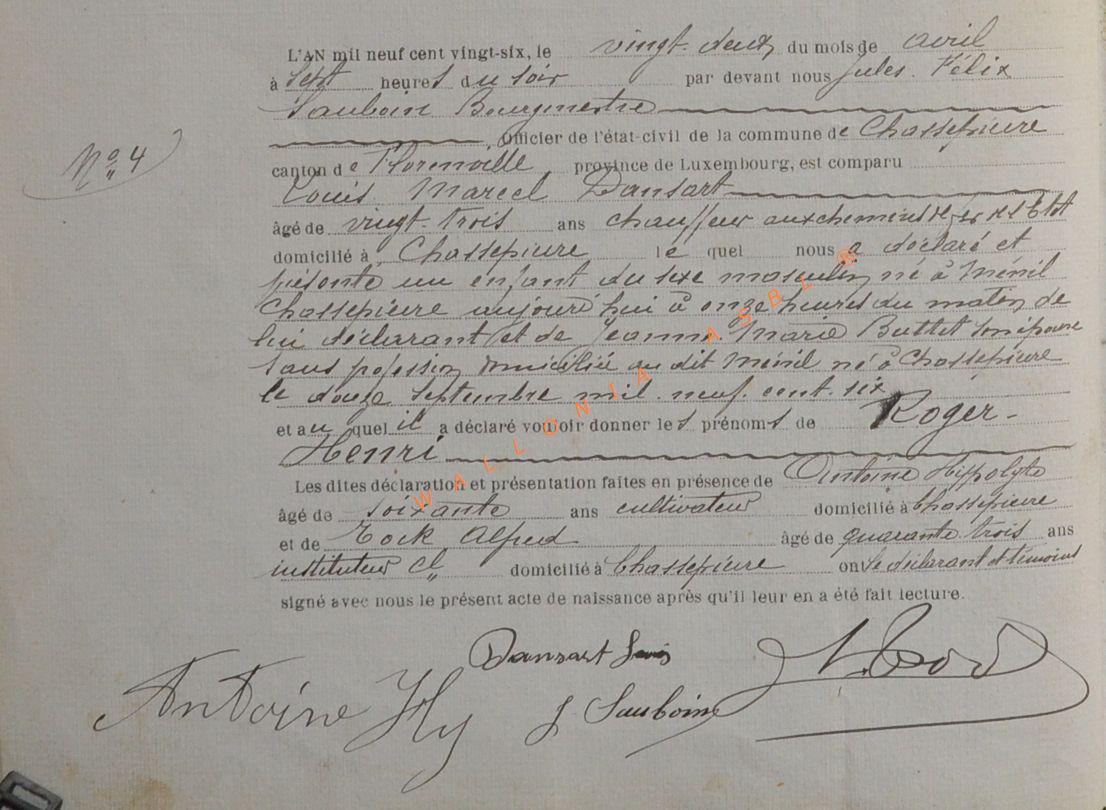 L'AN mil neuf cent vingt-six, le vingt-deux du mois de avril
à sept heures du soir par devant nous Jules. Félix
Sauboin Bourgmestre
, Officier de l'état-civil de la commune de Chassepierre
N° 4
canton de Florenville province de Luxembourg, est comparu
Louis Marcel Dansart
âgé de vingt-trois ans chauffeur aux chemins de fer de l'Etat
domicilié à Chassepierre lequel nous a déclaré et
présenté un enfant du sexe masculin né à Ménil
Chassepierre aujourd'hui à onze heures du matin de
lui déclarant et de Jeanne Marie Buttet son épouse
sans profession domiciliée au dit Ménil né à Chassepierre
le douze septembre mil. neuf. cent. six
et au quel il a déclaré vouloir donner les prénoms de Roger-
Henri
Les dites déclaration et présentation faites en présence de Antoine Hippolyte
âgé de soixante ans cultivateur domicilié à Chassepierre
et de Tock Alfred âgé de quarante trois ans
instituteur Cl domicilié à Chassepierre ont le déclarant et témoins
signé avec nous le présent acte de naissance après qu'il leur en a été fait lecture.
Dansart Louis
Antoine Hy J Sauboin
WALLONIA ASBL